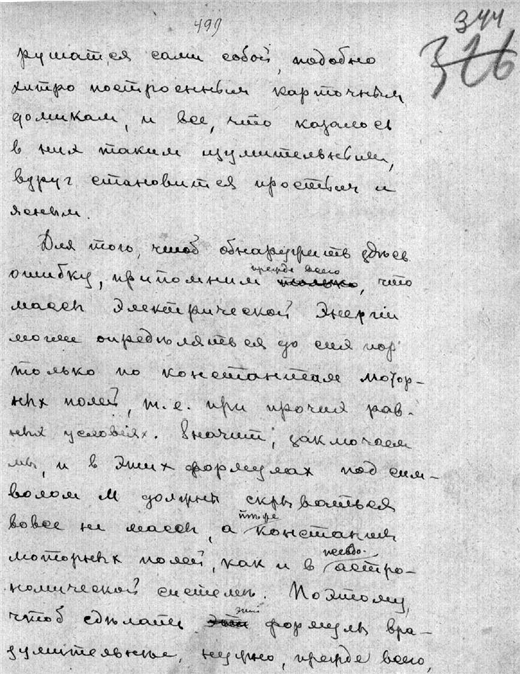 499
344
326
рушатся сами собой, подобно
хитро построенным карточным
домикам, и все, что казалось
в них таким изумительным,
вдруг становится простым и
ясным.
Для того, чтоб обнаружить здесь
прежде всего
ошибку, припомним только, что
массы электрической энергии
могли определяться до сих пор
только по константам мотор-
ных полей, т.е. при прочих рав-
ных условиях. Значит, заключаем
мы, и в этих формулах под сим-
волом М должны скрываться
вовсе не массы, а константы
моторных полей, как и в астро-
псевдо-
номической системе. Поэтому,
эти
чтоб сделать формулы вра-
зумительные, нужно, прежде всего,